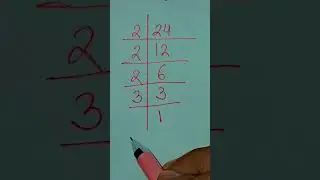 2 24
2 12
2 6
3 3
1